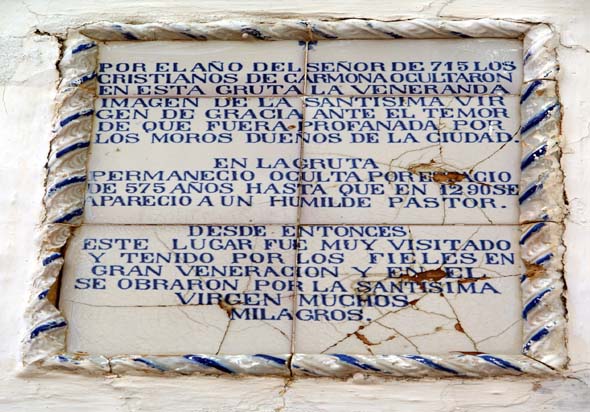 POR EL AÑO DEL SEÑOR DE 715 LOS
CRISTIANOS DE CARMONA OCULTARON
EN ESTA GRUTA LA VENERANDA
IMAGEN DE LA SANTISIMA VIR
GEN DE GRACIA ANTE EL TEMOR
DE QUE FUERA PROFANADA POR
LOS MOROS DUEÑOS DE LA CIUDAD.
EN LA GRUTA
PERMANECIO OCULTA POR ESPACIO
DE 575 AÑOS HASTA QUE EN 1290 SE
APARECIO A UN HUMILDE PASTOR.
DESDE ENTONCES
ESTE LUGAR FUE MUY VISITADO
Y TENIDO POR LOS FIELES EN
GRAN VENERACION Y EN EL
SE OBRARON POR LA SANTISIMA
VIRGEN MUCHOS
MILAGROS.